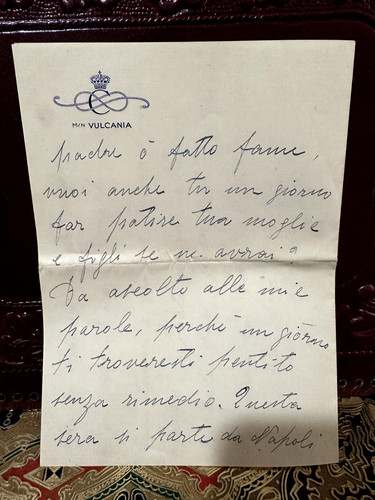 C
M/N VULCANIA
padre ò fatto fame,
vuoi anche tu un giorno
far patire tua moglie
e figli se ne avrai?
Da ascolto alle mie
parole, perchè un giorno
ti troveresti pentito
senza rimedio. Questa
sera si parte da Napoli